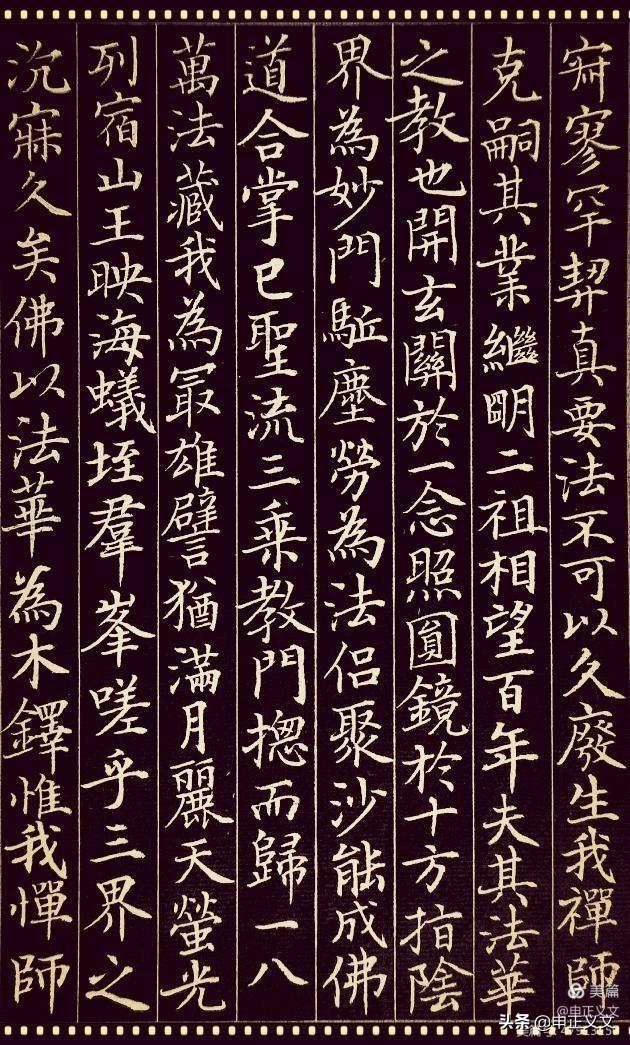 寂寥罕契真要法不可以久廢生我禪師
克嗣其業繼明二祖相望百年夫其法華
之教也開玄關於一念照圓鏡於十方指陰
界為妙門駈塵勞為法侶聚沙能成佛
道合掌已聖流三乘教門揔而歸一八
萬法藏我為冣雄譬猶滿月麗天螢光
列宿山王映海蟻垤羣峯嗟乎三界之
沉寐久矣佛以法華為木鐸惟我憚師
美篇
@申正义文
头条 @申正义文